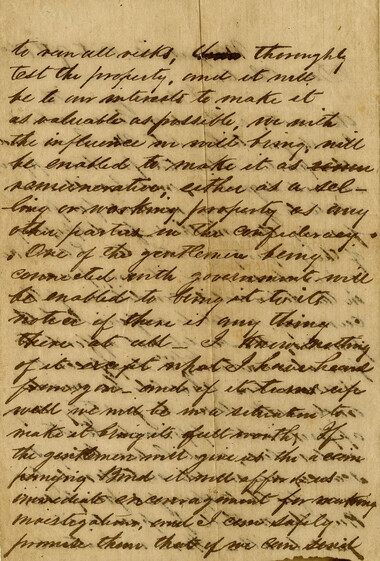 to run all risks, thoroughly
test the property, and it will
be to our interests to make it
as valuable as possible, we with
the influence we will bring, will
be enabled to make it as
remunerative, either as a sel-
ling or working property as any
other parties in the confederacy.
One of the gentlemen being
connected with government will
be enabled to bring it to its
notice if there is any thing
there at all – I know nothing
of it except what I have heard
from you – and if it turns up
well we will be in a situation to
make it bring its full worth, If
the gentlemen will give us the accom
panying Bond it will afford us
immediate encouragement for making
investigations, and I can safely
promise them that if we can